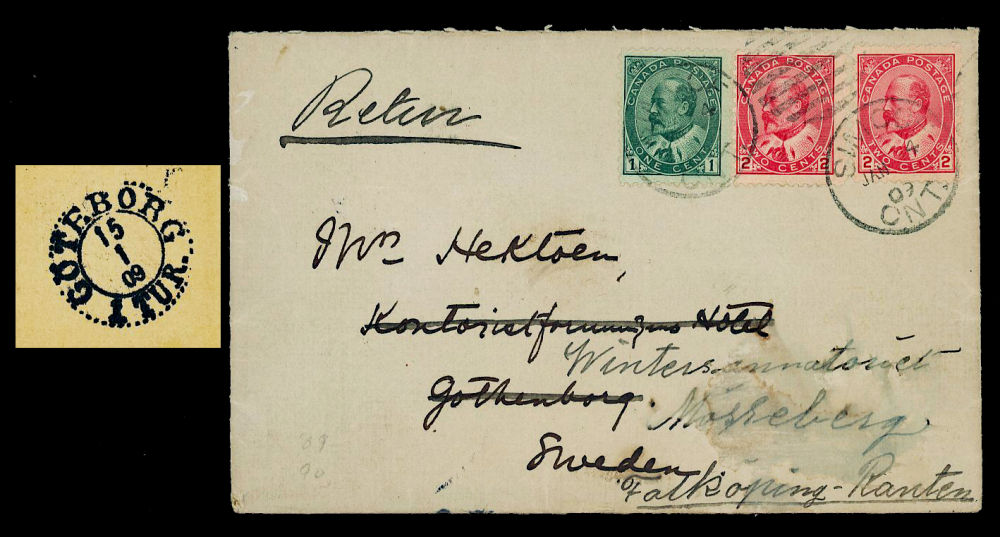 GÖTEBORG
15
1
09
1 TUR.
Retur
CANADA POSTAGE
1 ONE CENTS 1
CANADA POSTAGE
2 TWO CENTS 2
CANADA POSTAGE
2 TWO CENTS 2
JAN 4
09
ONT.
Hektoen,
Hotel
Wintersannatoriet
Gothenborg.
Mösseberg
Sweden
Falköping-Ranten